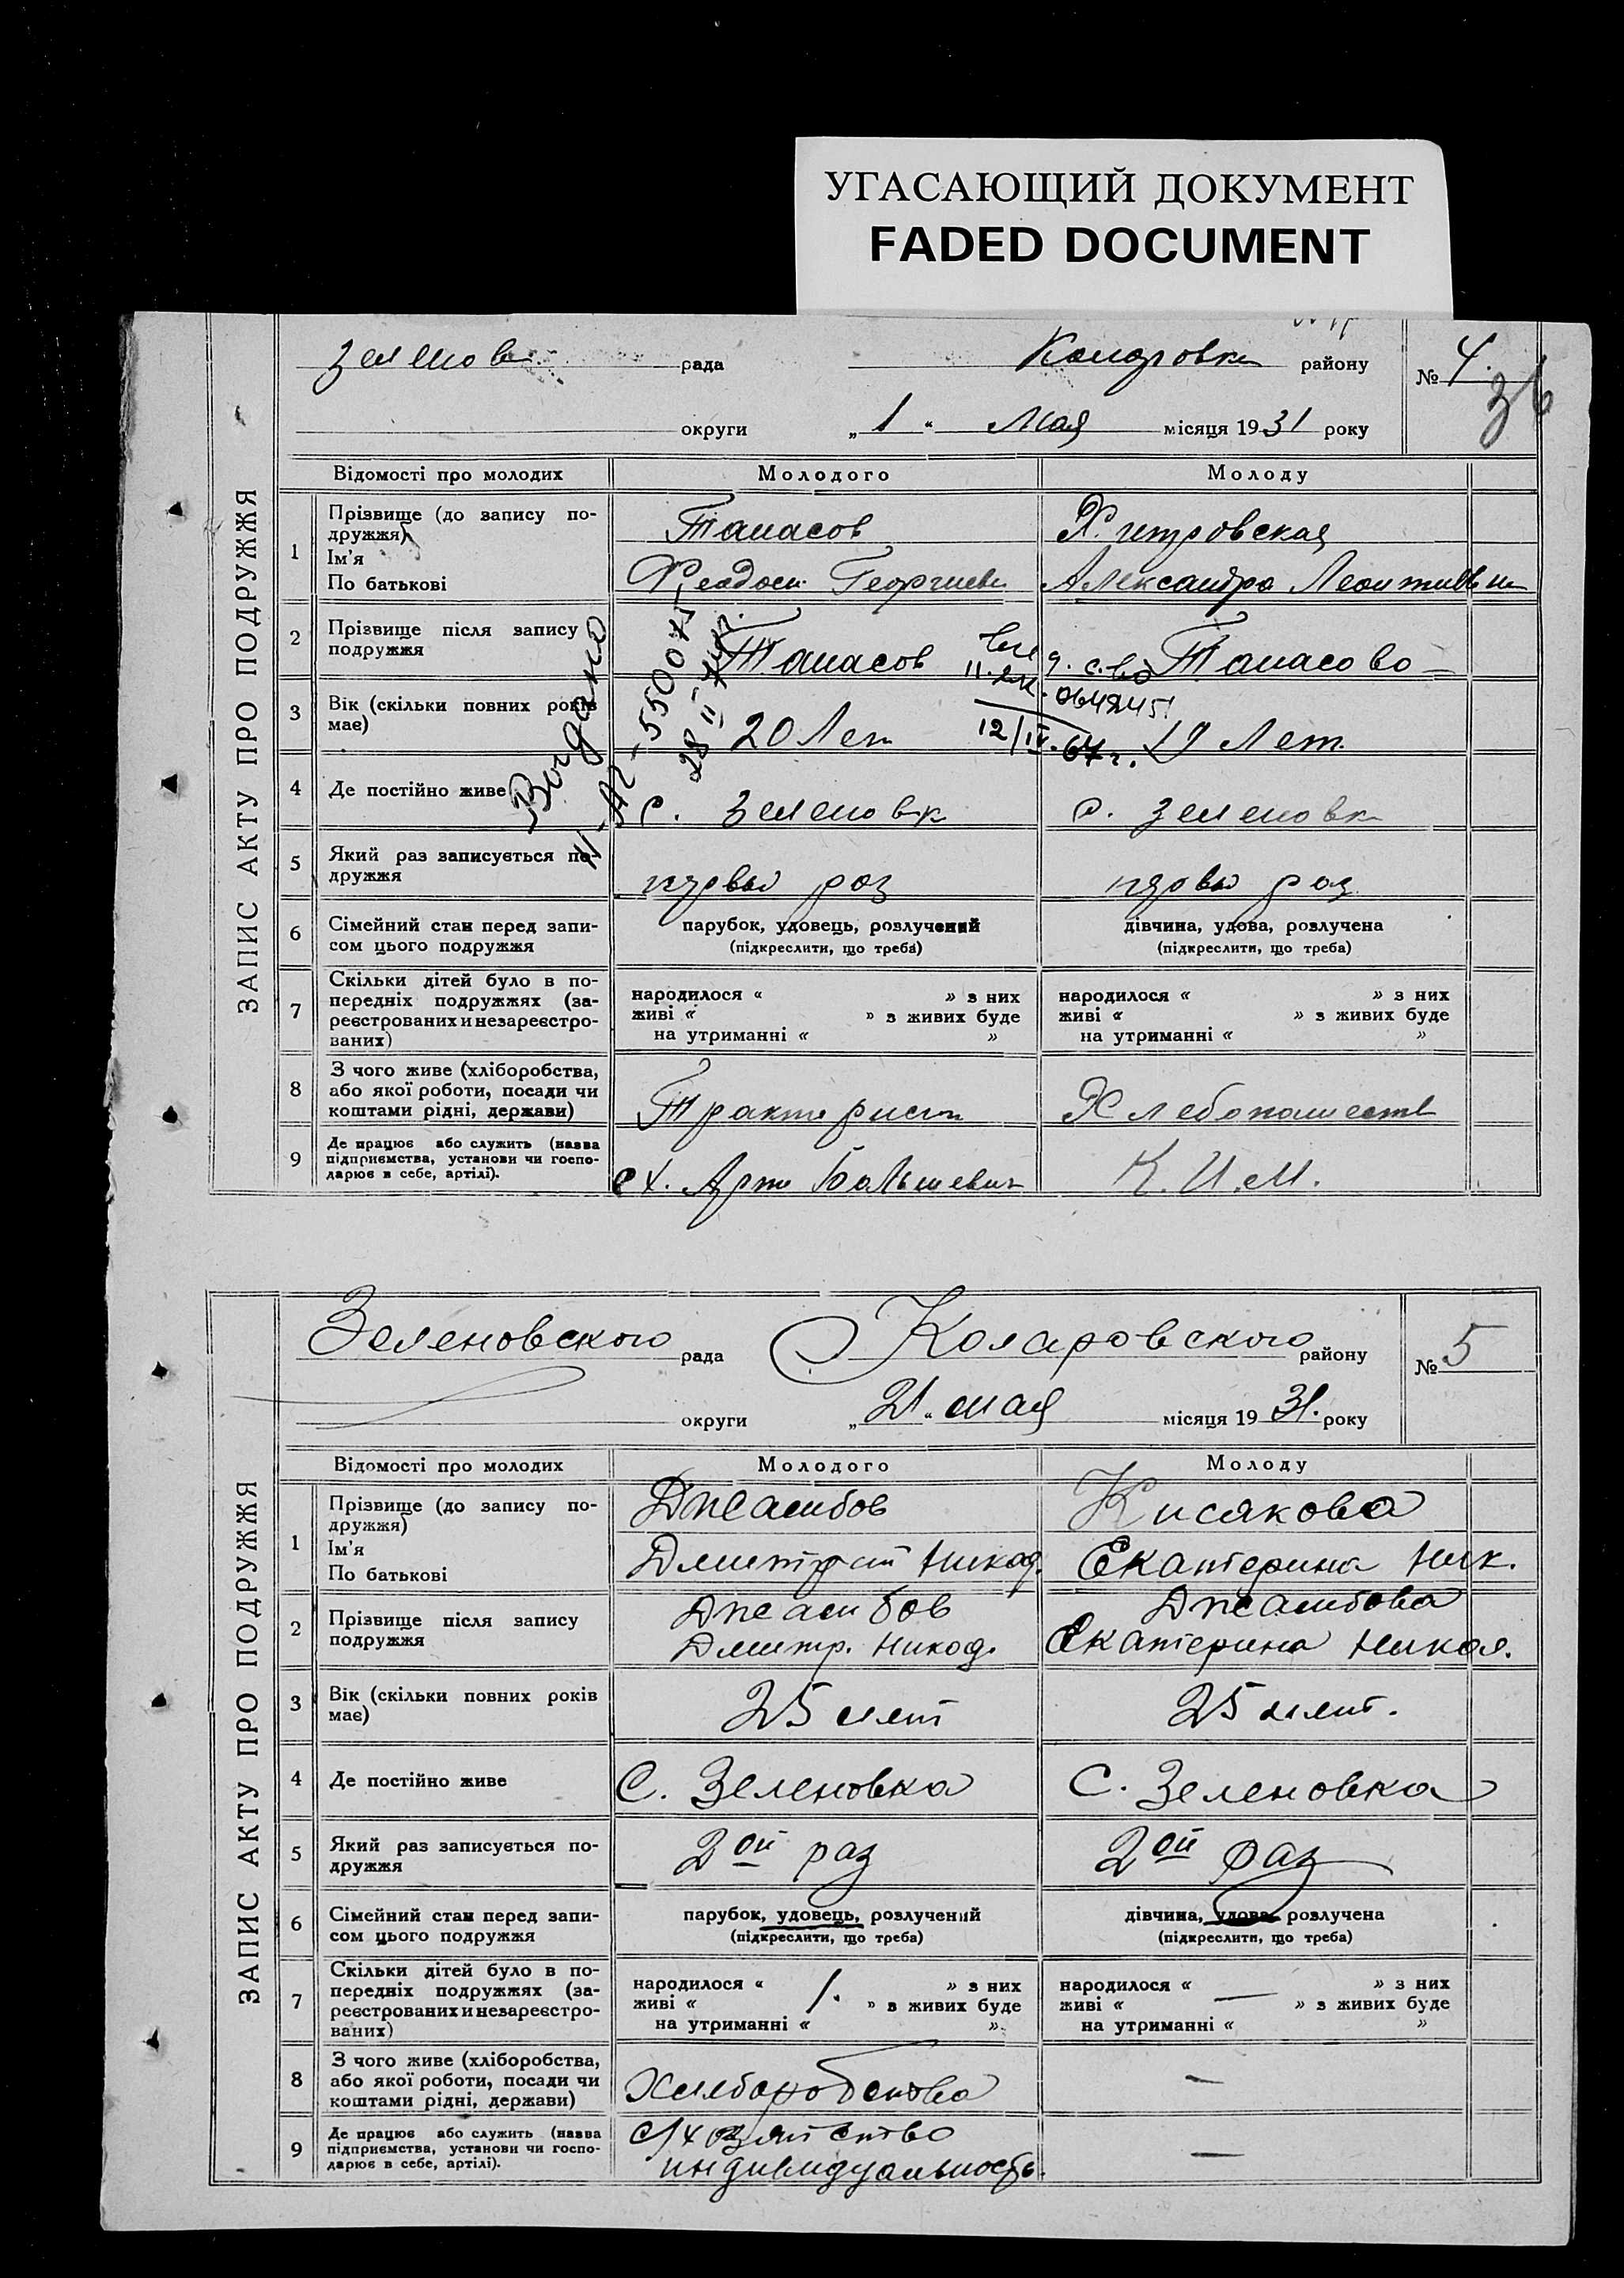 УГАСАЮЩИЙ ДОКУМЕНТ
FADED DOCUMENT
ЗАПИС АКТУ ПРО ПОДРУЖЖЯ
рада
району
№ 4.
36
округи
„ 1 “ Мая місяця 1931 року
Відомості про молодих
Молодого
Молоду
1
Прізвище (до запису по-
дружжя)
Ім'я
По батькові
Танасов
Александра
2
Прізвище після запису
подружжя
Танасов
Танасово
Видано
28 II
12/IV-67г.
3
Вік (скільки повних років
має)
20 Лет
19 Лет.
4
Де постійно живе
с. Зеленовк
с. Зеленовк
5
Який раз записується по-
дружжя
первы раз
первы раз
6
Сімейний стан перед запи-
сом цього подружжя
парубок, удовець, розлучений
(підкреслити, що треба)
дівчина, удова, розлучена
(підкреслити, що треба)
7
Скільки дітей було в по-
передніх подружжях (за-
реєстрованих и незареєстро-
ваних)
народилося “ » з них
живі “ » з живих буде
на утриманні “ »
народилося “ » з них
живі “ » з живих буде
на утриманні “ »
8
З чого живе (хліборобства,
або якої роботи, посади чи
коштами рідні, держави)
Трактерист
9
Де працює або служить (назва
підприємства, установи чи госпо-
дарює в себе, артілі).
К. И. М.
ЗАПИС АКТУ ПРО ПОДРУЖЖЯ
Зеленовского рада
Коларовского району
№ 5
округи
„ 21 “ мая місяця 1931. року
Відомості про молодих
Молодого
Молоду
1
Прізвище (до запису по-
дружжя)
Ім'я
По батькові
Джамбов
Дмитрий Никод.
Кисякова
Екатерина Ник.
2
Прізвище після запису
подружжя
Джамбов
Дмитр. Никод.
Джамбова
Екатерина Никол.
3
Вік (скільки повних років
має)
25 лет
25 лет.
4
Де постійно живе
С. Зеленовка
С. Зеленовка
5
Який раз записується по-
дружжя
2ой раз
2ой раз
6
Сімейний стан перед запи-
сом цього подружжя
парубок, удовець, розлучений
(підкреслити, що треба)
дівчина, удова, розлучена
(підкреслити, що треба)
7
Скільки дітей було в по-
передніх подружжях (за-
реєстрованих и незареєстро-
ваних)
народилося “ 1. » з них
живі “ » з живих буде
на утриманні “ »
народилося “ — » з них
живі “ » з живих буде
на утриманні “ »
8
З чого живе (хліборобства,
або якої роботи, посади чи
коштами рідні, держави)
—
9
Де працює або служить (назва
підприємства, установи чи госпо-
дарює в себе, артілі).
—